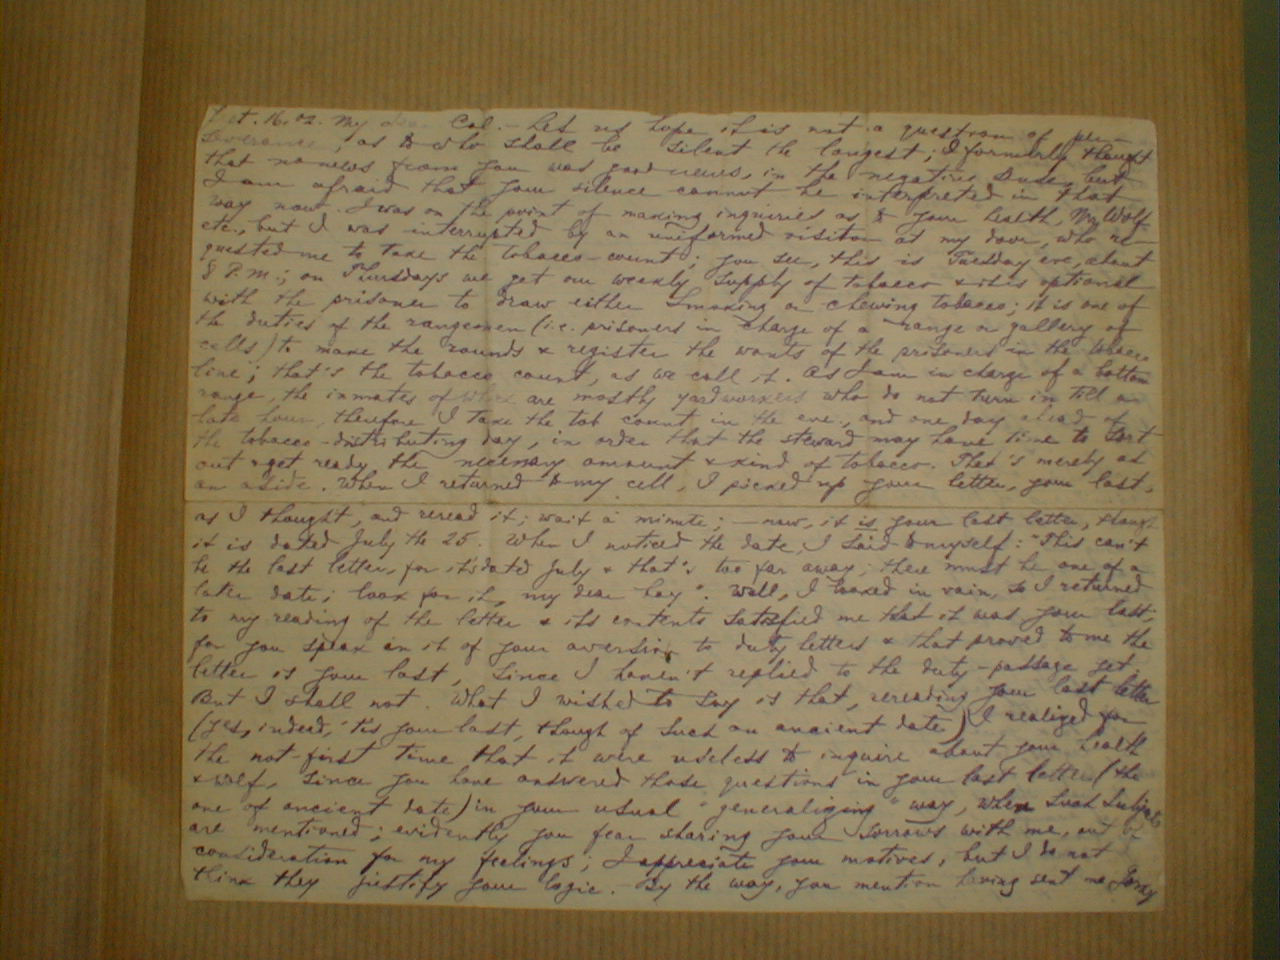 Oct. 16. 02. My dear Col. - Let us hope it is not a question of per-
severance, as to who shall be silent the longest; I formerly thought
that no news from you was good news, in the negative sense, but
I am afraid that your silence cannot be interpreted in that
way now. I was on the point of making inquiries as to your health, Mr. Wolf
etc., but I was interrupted by an uniformed visitor at my door, who re-
quested me to take the tobacco-count; you see, this is Tuesday eve, about
8 P.M.; on Thursdays we get our weekly supply of tobacco & it is optional
with the prisoner to draw either smoking or chewing tobacco; it is one of
the duties of the rangemen (i.e. prisoners in charge of a range or gallery of
cells) to make the rounds & register the wants of the prisoners in the tobacco
line; that's the tobacco count, as we call it. As I am in charge of a bottom
range, the inmates of which are mostly yardworkers who do not turn in till a
late hour, therefore I take the tob count in the eve, and one day ahead of
the tobacco-distributing day, in order that the steward may have time to sort
out & get ready the necessary amount & kind of tobacco. That's merely as
an aside. When I returned to my cell, I picked up your letter, your last,
as I thought, and reread it; wait a minute; now, it is your last letter, though
it is dated July the 25. When I noticed the date, I said to myself: "This can't
be the last letter, for it's dated July & that's too far away; there must be one of a
later date; look for it, my dear boy". Well, I looked in vain, so I returned
to my reading of the letter & its contents satisfied me that it was your last;
for you speak in it of your aversion to duty letters & that proved to me the
letter is your last, since I haven't replied to the duty-passage yet.
But I shall not. What I wished to say is that, rereading your last letter
(yes, indeed, 'tis your last, though of such an ancient date) I realized for
the not-first time that it were useless to inquire about your health
& wolf, since you have answered those questions in your last letter (the
one of ancient date) in your usual "generalizing" way, when such subjects
are mentioned; evidently you fear sharing your sorrows with me, out of
consideration for my feelings; I appreciate your motives, but I do not
think they justify your logic. - By the way, you mention having sent me